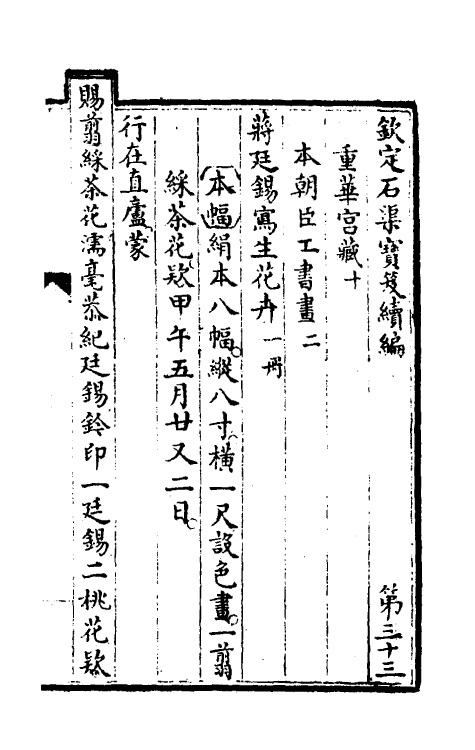 欽定石渠寶笈續編 第三十三
重華宮藏十
本朝臣工書畫二
蔣廷錫寫生花卉一冊
(本幅)絹本八幅。縱八寸。橫一尺設色畫。一翦
綵茶花欵甲午五月廿又二日。
行在直廬。蒙
賜翦綵茶花濡毫恭紀廷錫鈐印一廷錫二桃花欵